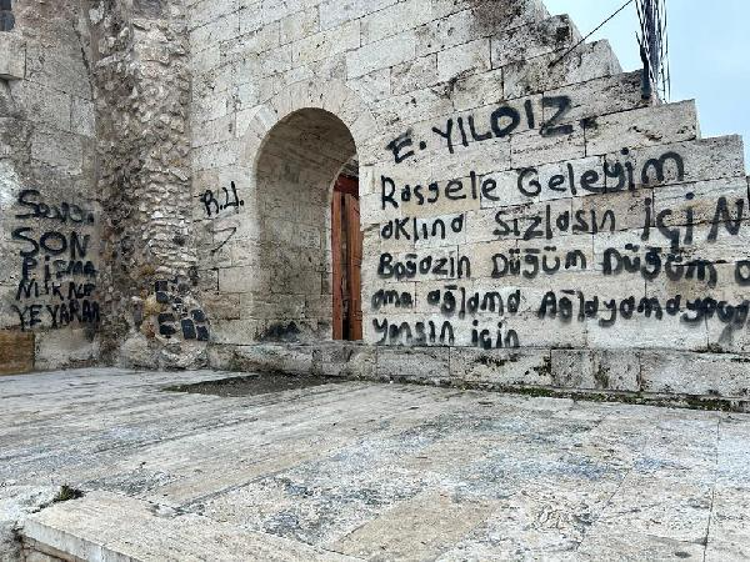 Sonu.
SON
PİŞMA
NLIK NE
YE YARAR
R.U.
E. YILDIZ
Rasgele Geleyim
aklına Sızlasın İÇİN
Boğazın Düğüm Düğüm o
ama ağlama Ağlayama
yansın için